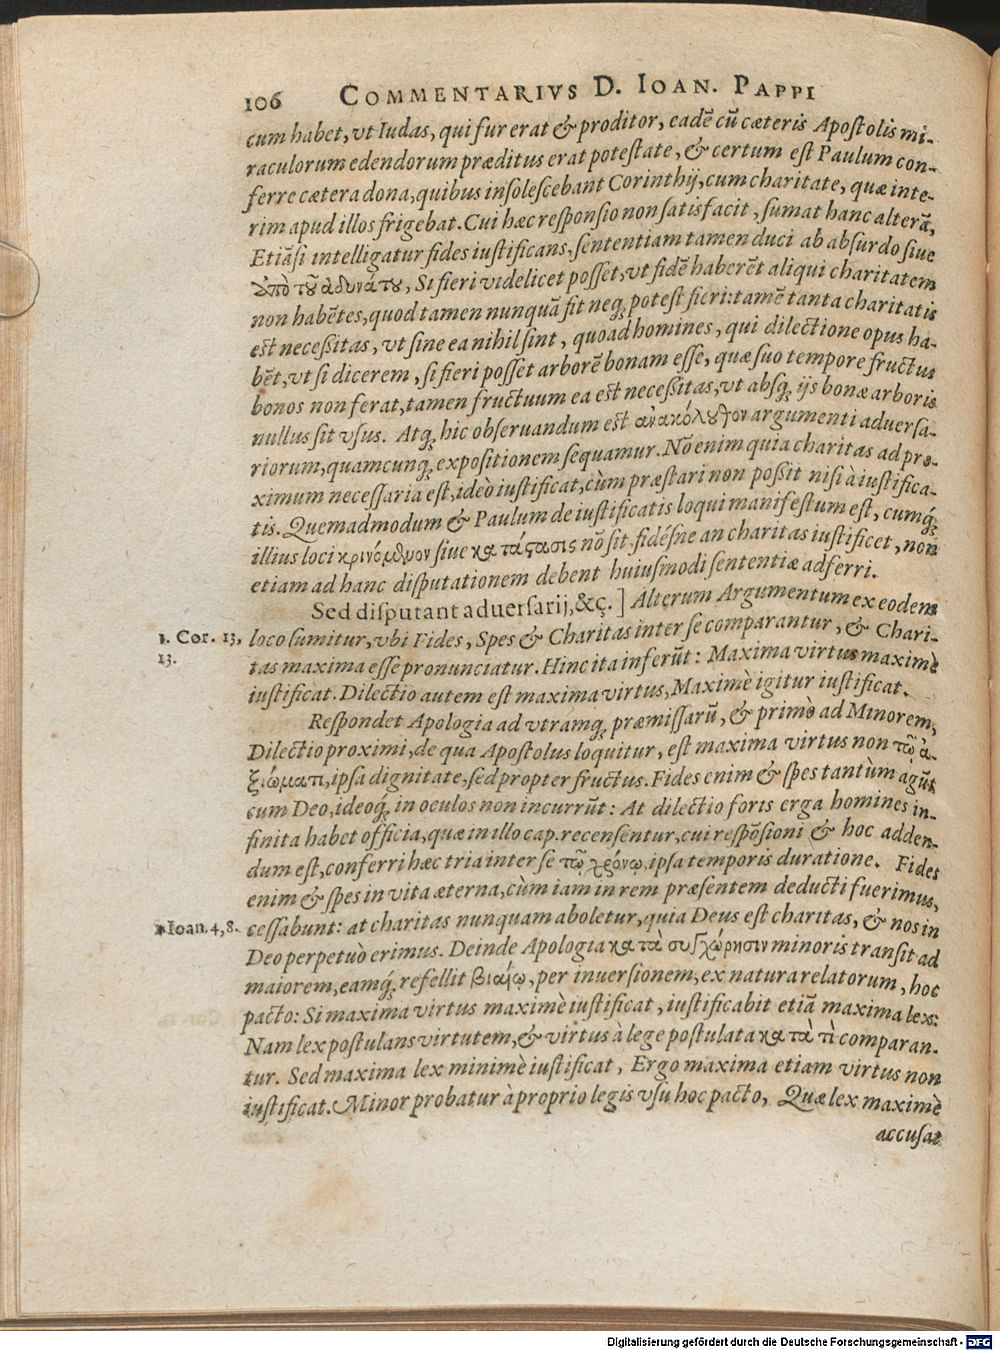 106 COMMENTARIVS D. IOAN. PAPPI
cum habet, vt Iudas, qui fur erat & proditor, eadē cū cæteris Apostolis mi-
raculorum edendorum præditus erat potestate, & certum est Paulum con-
ferre cætera dona, quibus insolescebant Corinthij, cum charitate, quæ inte-
rim apud illos frigebat. Cui hæc responsio non satisfacit, sumat hanc alterā,
Etiāsi intelligatur fides iustificans, sententiam tamen duci ab absurdo siue
ὑπὸ τοῦ ἀδυνάτου, Si fieri videlicet posset, vt fidē haberēt aliqui charitatem
non habētes, quod tamen nunquā fit neq́; potest fieri: tamē tanta charitatis
est necessitas, vt sine ea nihil sint, quoad homines, qui dilectione opus ha-
bēt, vt si dicerem, si fieri posset arborē bonam esse, quæ suo tempore fructus
bonos non ferat, tamen fructuum ea est necessitas, vt absq́; ijs bonæ arboris
nullus sit vsus. Atq́; hic obseruandum est ἀνακόλουθον argumenti aduersa-
riorum, quamcunq́; expositionem sequamur. Nō enim quia charitas ad pro-
ximum necessaria est, ideò iustificat, cùm præstari non possit nisi à iustifica-
tis. Quemadmodum & Paulum de iustificatis loqui manifestum est, cumq́;
illius loci κρινόμενον siue κατάστασις nō sit fidésne an charitas iustificet, non
etiam ad hanc disputationem debent huiusmodi sententiæ adferri.
Sed disputant aduersarij, &ç.] Alterum Argumentum ex eodem
1. Cor. 13, loco sumitur, vbi Fides, Spes & Charitas inter se comparantur, & Chari-
13. tas maxima esse pronunciatur. Hinc ita inferūt: Maxima virtus maximè
iustificat. Dilectio autem est maxima virtus, Maximè igitur iustificat.
Respondet Apologia ad vtramq́; præmissarū, & primò ad Minorem,
Dilectio proximi, de qua Apostolus loquitur, est maxima virtus non τῷ ἀ-
ξιώματι, ipsa dignitate, sed propter fructus. Fides enim & spes tantùm agūt
cum Deo, ideoq́; in oculos non incurrūt: At dilectio foris erga homines in-
finita habet officia, quæ in illo cap. recensentur, cui respōsioni & hoc adden-
dum est, conferri hæc tria inter se τῷ χρόνῳ, ipsa temporis duratione. Fides
enim & spes in vita æterna, cùm iam in rem præsentem deducti fuerimus,
Ioan. 4, 8. cessabunt: at charitas nunquam aboletur, quia Deus est charitas, & nos in
Deo perpetuò erimus. Deinde Apologia κατὰ συγχώρησιν minoris transit ad
maiorem, eamq́; refellit βιαίῳ, per inuersionem, ex natura relatorum, hoc
pacto: Si maxima virtus maximè iustificat, iustificabit etiā maxima lex:
Nam lex postulans virtutem, & virtus à lege postulata κατὰ τὶ comparan-
tur. Sed maxima lex minimè iustificat, Ergo maxima etiam virtus non
iustificat. Minor probatur à proprio legis vsu hoc pacto, Quæ lex maximè
accusat
Digitalisierung gefördert durch die Deutsche Forschungsgemeinschaft - DFG